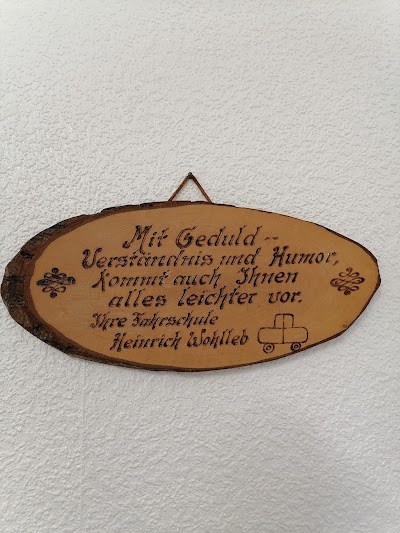 Mit Geduld --
Verständnis und Humor,
kommt auch Ihnen
alles leichter vor.
Ihre Fahrschule
Heinrich Wohlleb